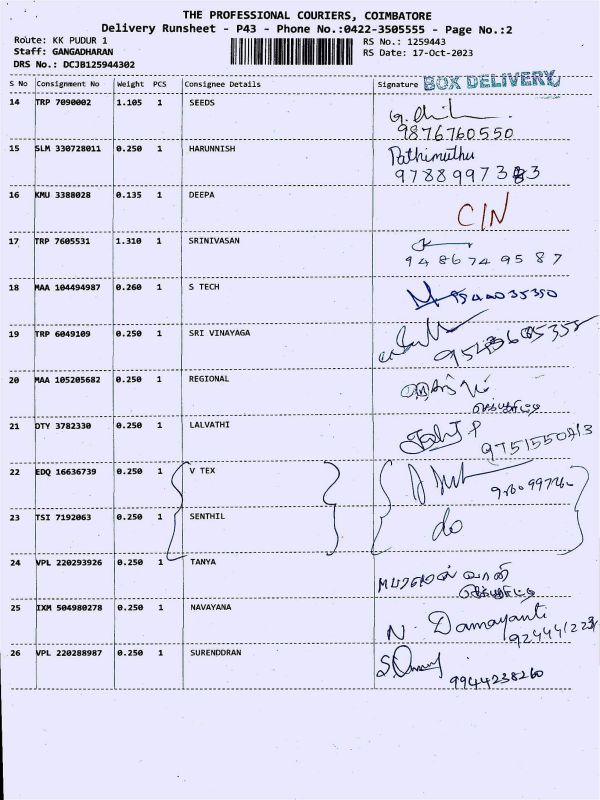 THE PROFESSIONAL COURIERS, COIMBATORE
Delivery Runsheet - P43 - Phone No.:0422-3505555 - Page No.:2
Route: KK PUDUR 1
RS No.: 1259443
Staff: GANGADHARAN
RS Date: 17-Oct-2023
DRS No.: DCJB125944302
S No Consignment No Weight PCS Consignee Details Signature BOX DELIVERY
14 TRP 7090002 1.105 1 SEEDS
9876760550
15 SLM 330728011 0.250 1 HARUNNISH Pathimuthu
16 KMU 3388028 0.135 1 DEEPA
C/N
17 TRP 7605531 1.310 1 SRINIVASAN
9486749587
18 MAA 104494987 0.260 1 S TECH
19 TRP 6049109 0.250 1 SRI VINAYAGA
20 MAA 105205682 0.250 1 REGIONAL
21 DTY 3782330 0.250 1 LALVATHI
22 EDQ 16636739 0.250 1 V TEX
23 TSI 7192063 0.250 1 SENTHIL do
24 VPL 220293926 0.250 1 TANYA
25 IXM 504980278 0.250 1 NAVAYANA N. Damayanti
26 VPL 220288987 0.250 1 SURENDDRAN
9944238260